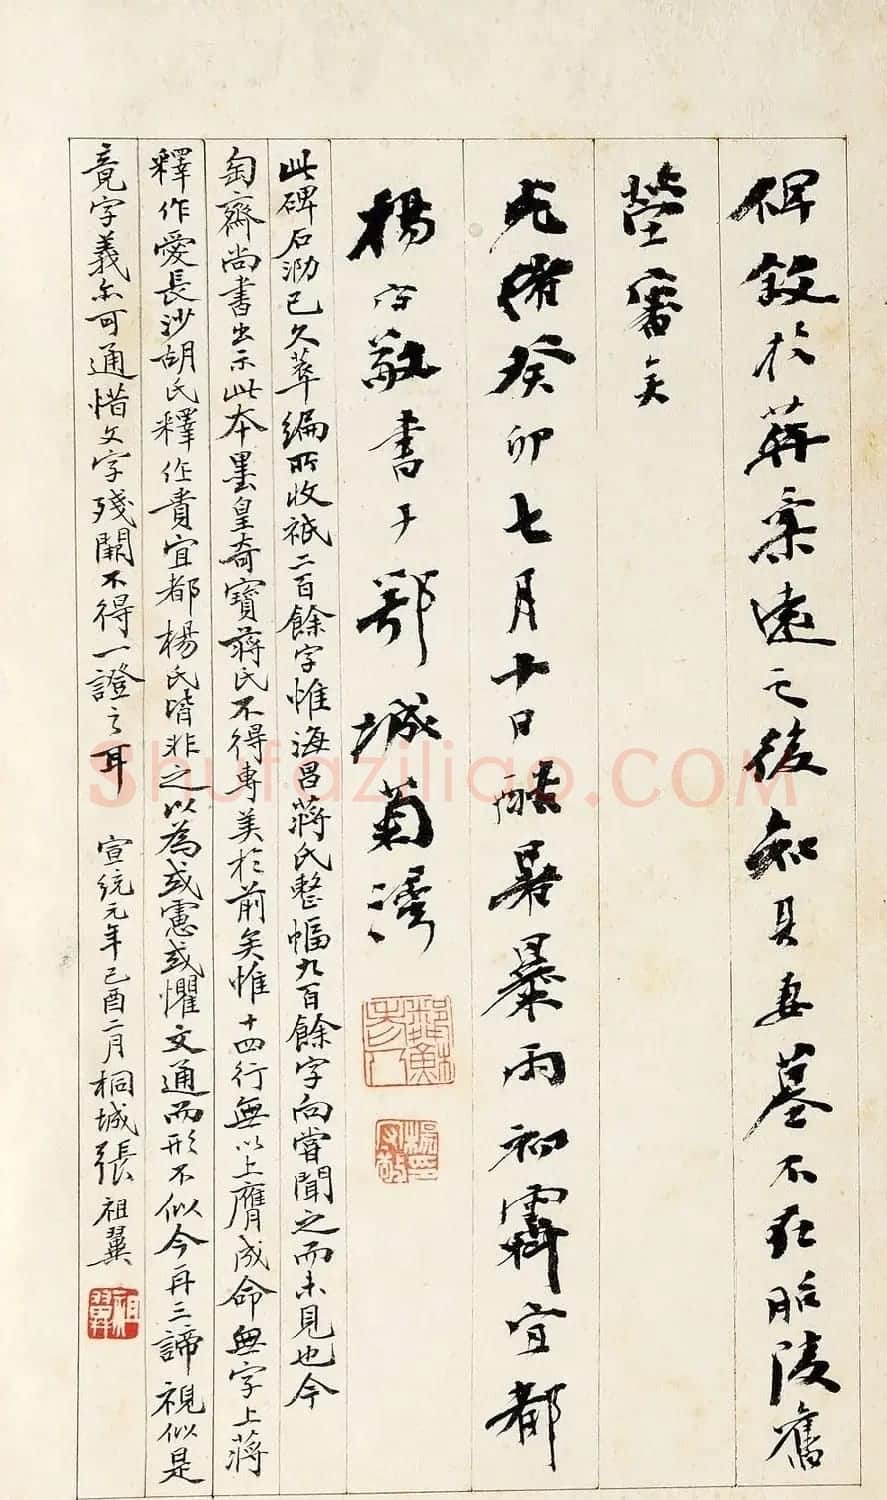 碑敘於葬遠之後知其妻墓不在昭陵舊
塋審矣
光緒癸卯七月十日酷暑暴雨初霽宜都
楊守敬書于鄂城菊灣
楊守敬印
此碑石泐已久萃編所收祇二百餘字惟海昌蔣氏整幅九百餘字向嘗聞之而未見也今
匋齋尚書出示此本墨皇奇寶蔣氏不得專美於前矣惟十四行無以上膺成命無字上蔣
釋作愛長沙胡氏釋作責宜都楊氏皆非之以為或憲或懼文通而形不似今再三諦視似是
竟字義亦可通惜文字殘闕不得一證之耳 宣統元年己酉二月桐城張祖翼
祖翼
Shufaziliao.COM